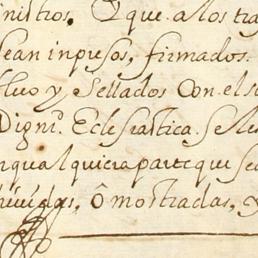 nistros. O que a los tra
sean inpresos, firmados.
y Sellados Con el s
Digni. Eclesiastica. se le
qualquiera parte que se
Ô mostradas,